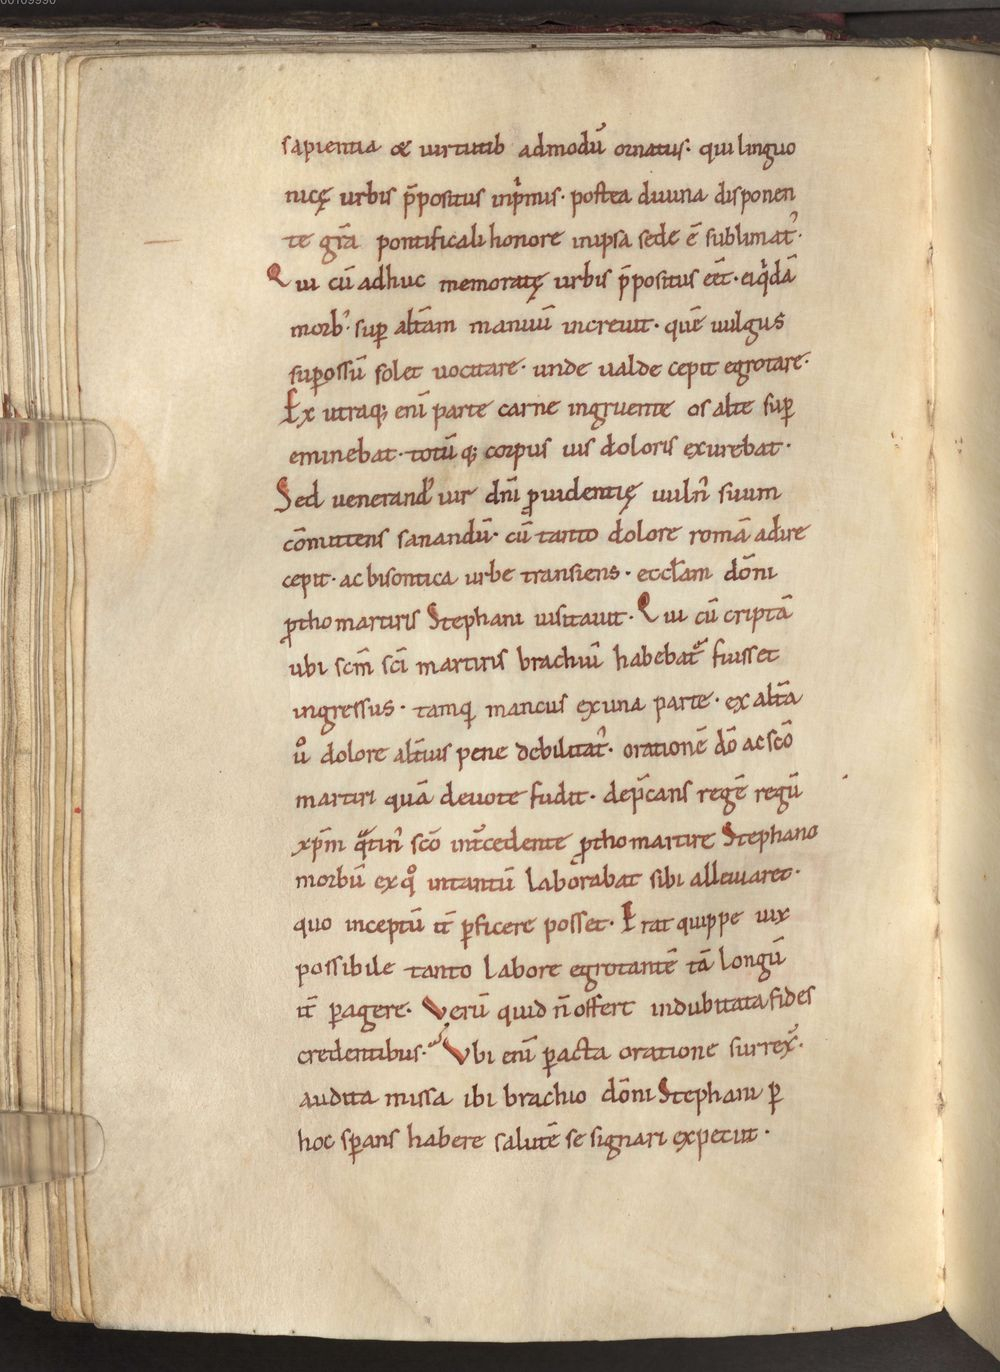 sapientia & uirtutib admodū ornatus. qui linguo
nicę urbis p̄positus inp̍mis. postea diuina disponen
te gr̄a pontificali honore inipsa sede ē sublimat᾿.
Qui cū adhuc memoratę urbis p̄positus eēt. eiq̍dā
morb᾿. suꝑ alt̄am manuū increuit. quē uulgus
suꝑossū solet uocitare. unde ualde cepit egrotare.
Ex utraq; enī parte carne ingruente os alte suꝑ
eminebat. totū q; corpus uis doloris exurebat.
Sed uenerand᾿ uir dn̄i ꝓuidentię uuln᾿ suum
cōmittens sanandū. cū tanto dolore romā adire
cepit. ac bisontica urbe transiens. eccl̄am dōni
ꝓthomartiris Stephani uisitauit. Qui cū criptā
ubi scm̄ sc̄i martiris brachiū habebat᾿ fuisset
ingressus. tamq̄ mancus ex una parte. ex alt̄a
uͦ dolore alt̄ius pene debilitat᾿. orationē dō ac scō
martiri quā deuote fudit. dep̄cans regē regū
xp̄m q̄tin᾿ scō int̄cedente ꝓthomartire Stephano
morbū ex qͦ intantū laborabat sibi alleuiaret.
quo inceptū it̄ ꝑficere posset. Erat quippe uix
possibile tanto labore egrotantē tā longū
it̄ ꝑagere. Verū quid n̄ offert indubitata fides
credentibus. Vbi enī ꝑacta oratione surrex᾿.
audita missa ibi brachio dōni Stephani ꝑ
hoc sꝑans habere salutē se signari expetiit.